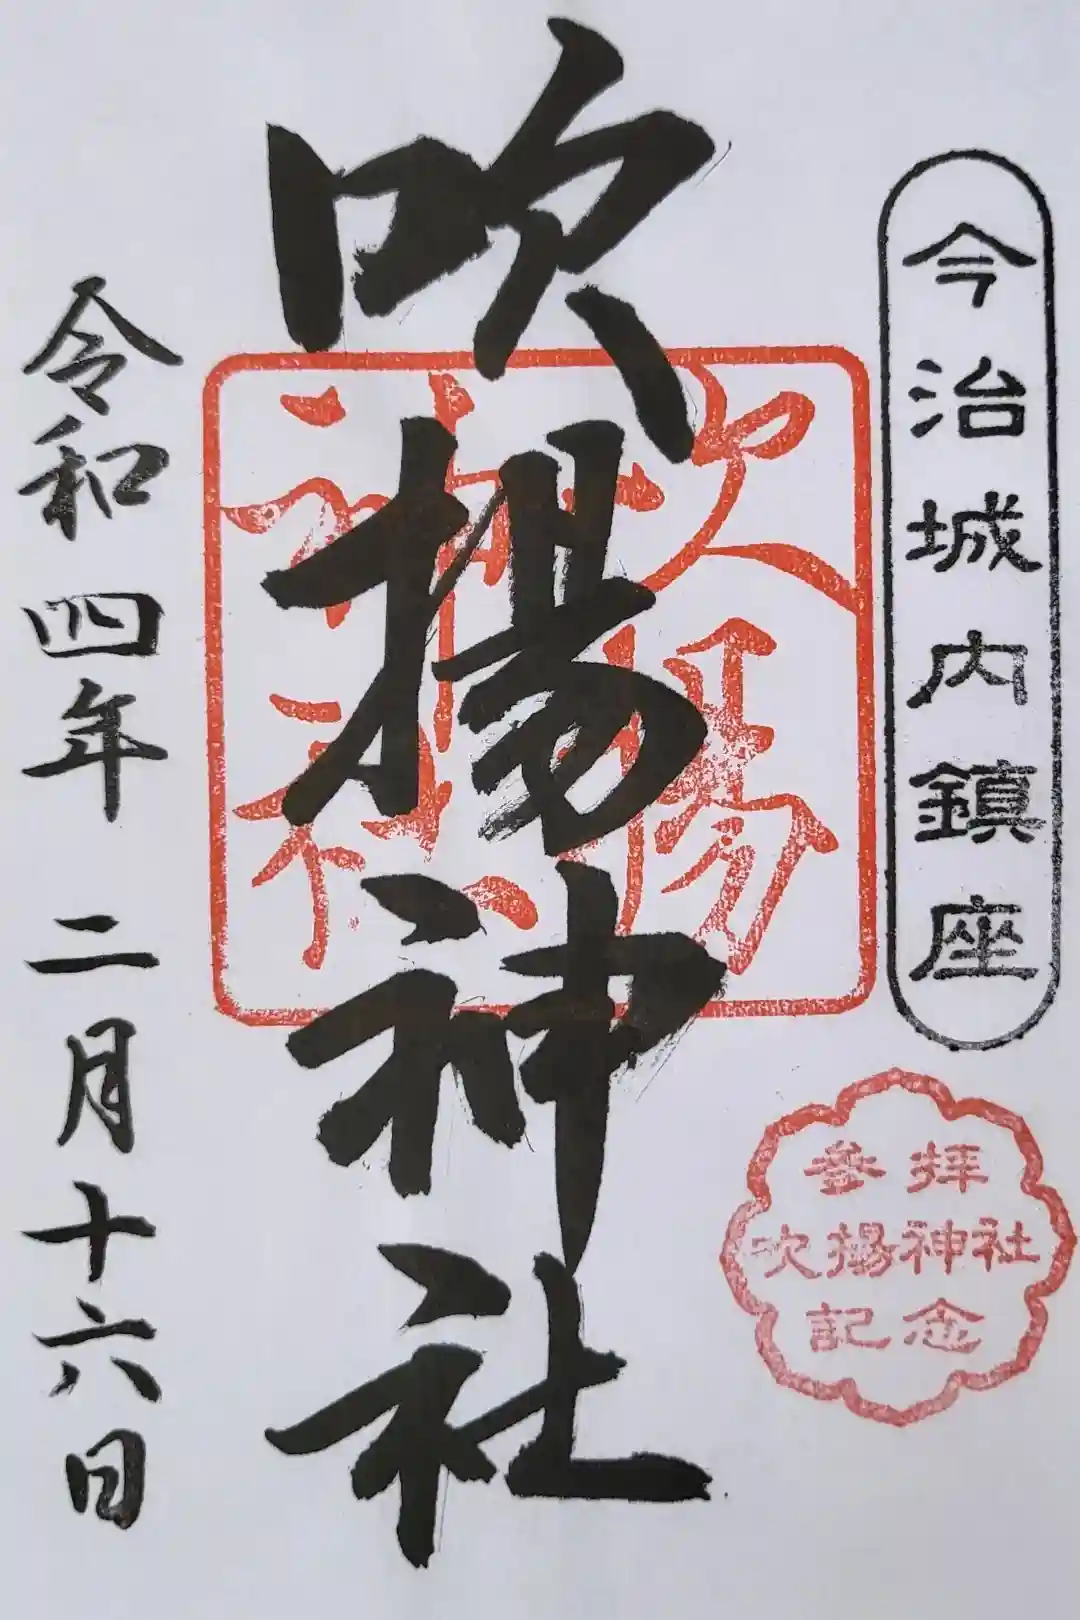 今治城内鎮座
参拝
吹揚神社
記念
吹揚神社
吹揚
神社
令和四年二月十六日